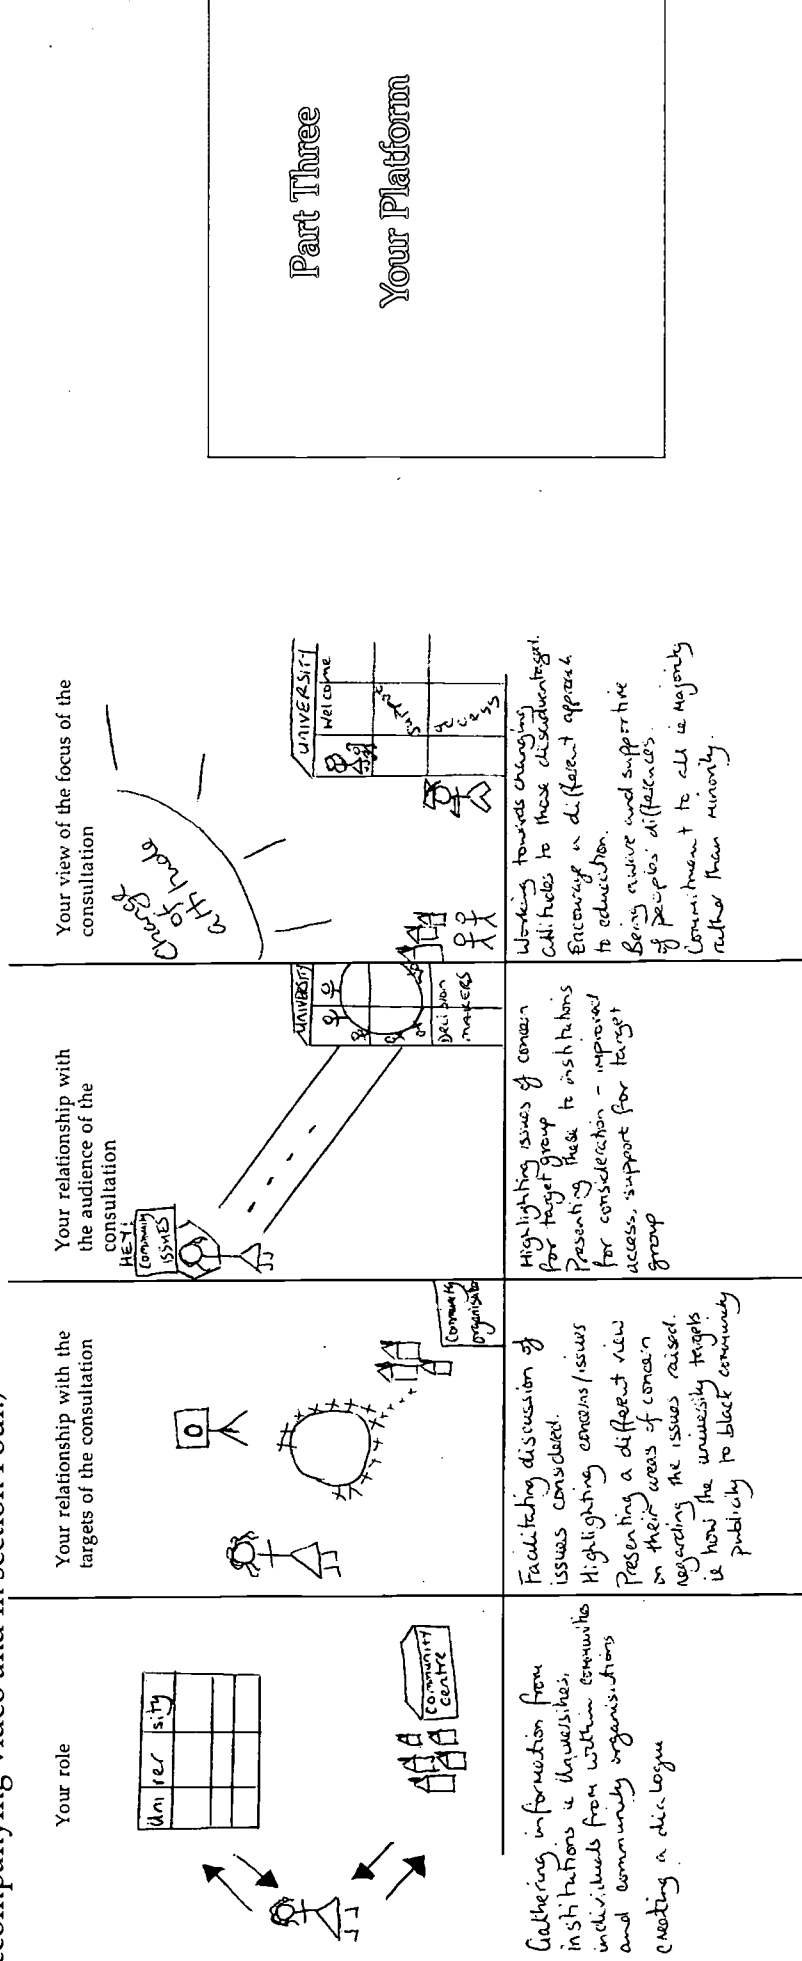 companying video and in section Four.)
Your role
Uni ver sity
Community
centre
Gathering information from
institutions ie Universities,
individuals from within communities
and community organisations
creating a dialogue
Your relationship with the
targets of the consultation
Community
organisatio
Facilitating discussion of
issues considered.
Highlighting concerns/issues
Presenting a different view
on their areas of concern
regarding the issues raised.
ie how the university targets
publicity to black community
Your relationship with
the audience of the
consultation
HEY!
Community
ISSUES
UNIVERSITY
Decision
MAKERS
Highlighting issues of concern
for target group
Presenting these to institutions
for consideration - improved
access, support for target
group
Your view of the focus of the
consultation
Change
of
attitude
UNIVERSITY
Welcome
Success
Working towards changing
attitudes to those disadvantaged.
Encourage a different approach
to education.
Being aware and supportive
of peoples' differences.
Commitment to all ie Majority
rather than Minority.
Part Three
Your Platform